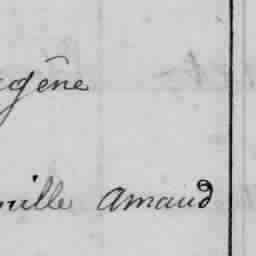 gène
ille Amaud